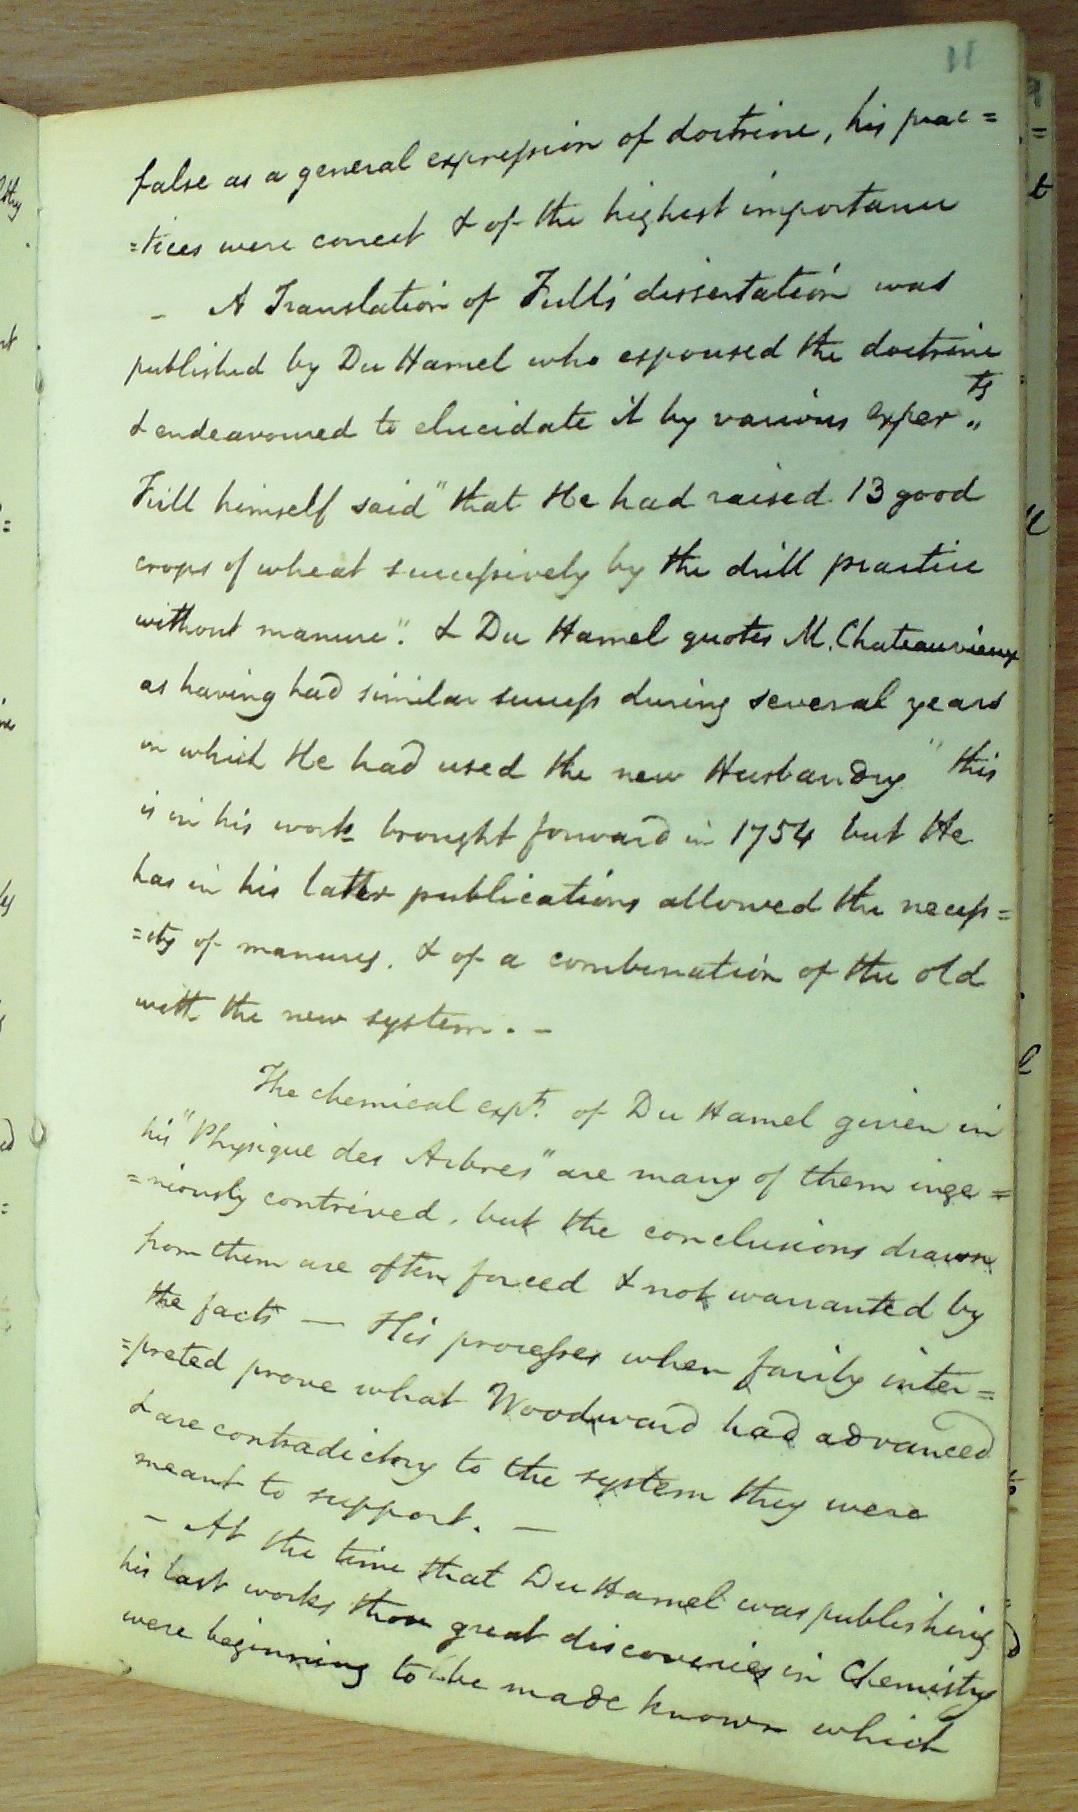 11
false as a general expression of doctrine, his prac=
=tices were correct & of the highest importance
_ A Translation of Tull's dissertation was
published by Du Hamel who espoused the doctrine
& endeavoured to elucidate it by various exper.ts
Tull himself said "that He had raised 13 good
crops of wheat successively by the drill practice
without manure". & Du Hamel quotes M. Chateauvieux
as having had similar success during several years
in which He had used the new Husbandry " this
is in his work brought forward in 1754 but He
has in his latter publications allowed the necess=
=ity of manures, & of a combination of the old
with the new system. -
The chemical expts. of Du Hamel given in
his "Physique des Arbres" are many of them inge=
=niously contrived, but the conclusions drawn
from them are often forced & not warranted by
the facts — His processes when fairly inter=
=preted prove what Woodward had advanced
& are contradictory to the system they were
meant to support. —
- At the time that Du Hamel was publishing
his last works those great discoveries in Chemistry
were beginning to be made known which